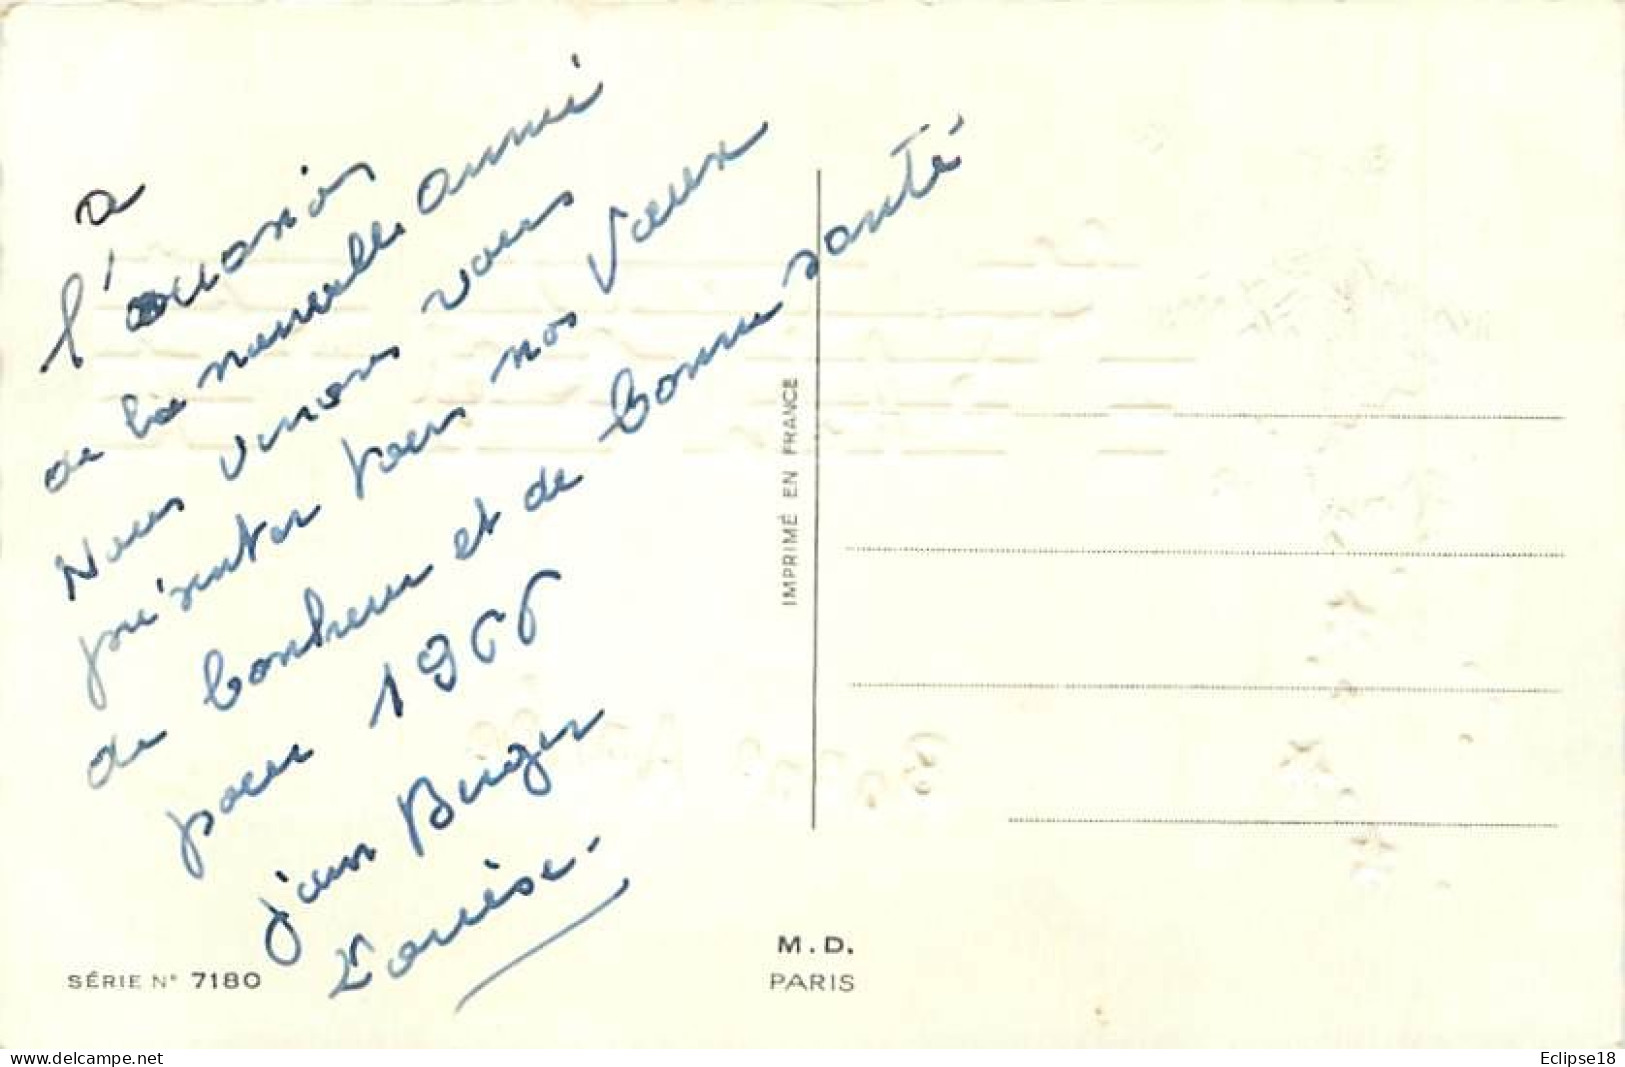 a
l'occasion
de la nouvelle année
Nous venons vous
présenter tous nos Vœux
de bonheur et de bonne santé
pour 1966
Jean
Louise.
IMPRIMÉ EN FRANCE
M.D.
PARIS
SÉRIE N° 7180
www.delcampe.net
Eclipse18